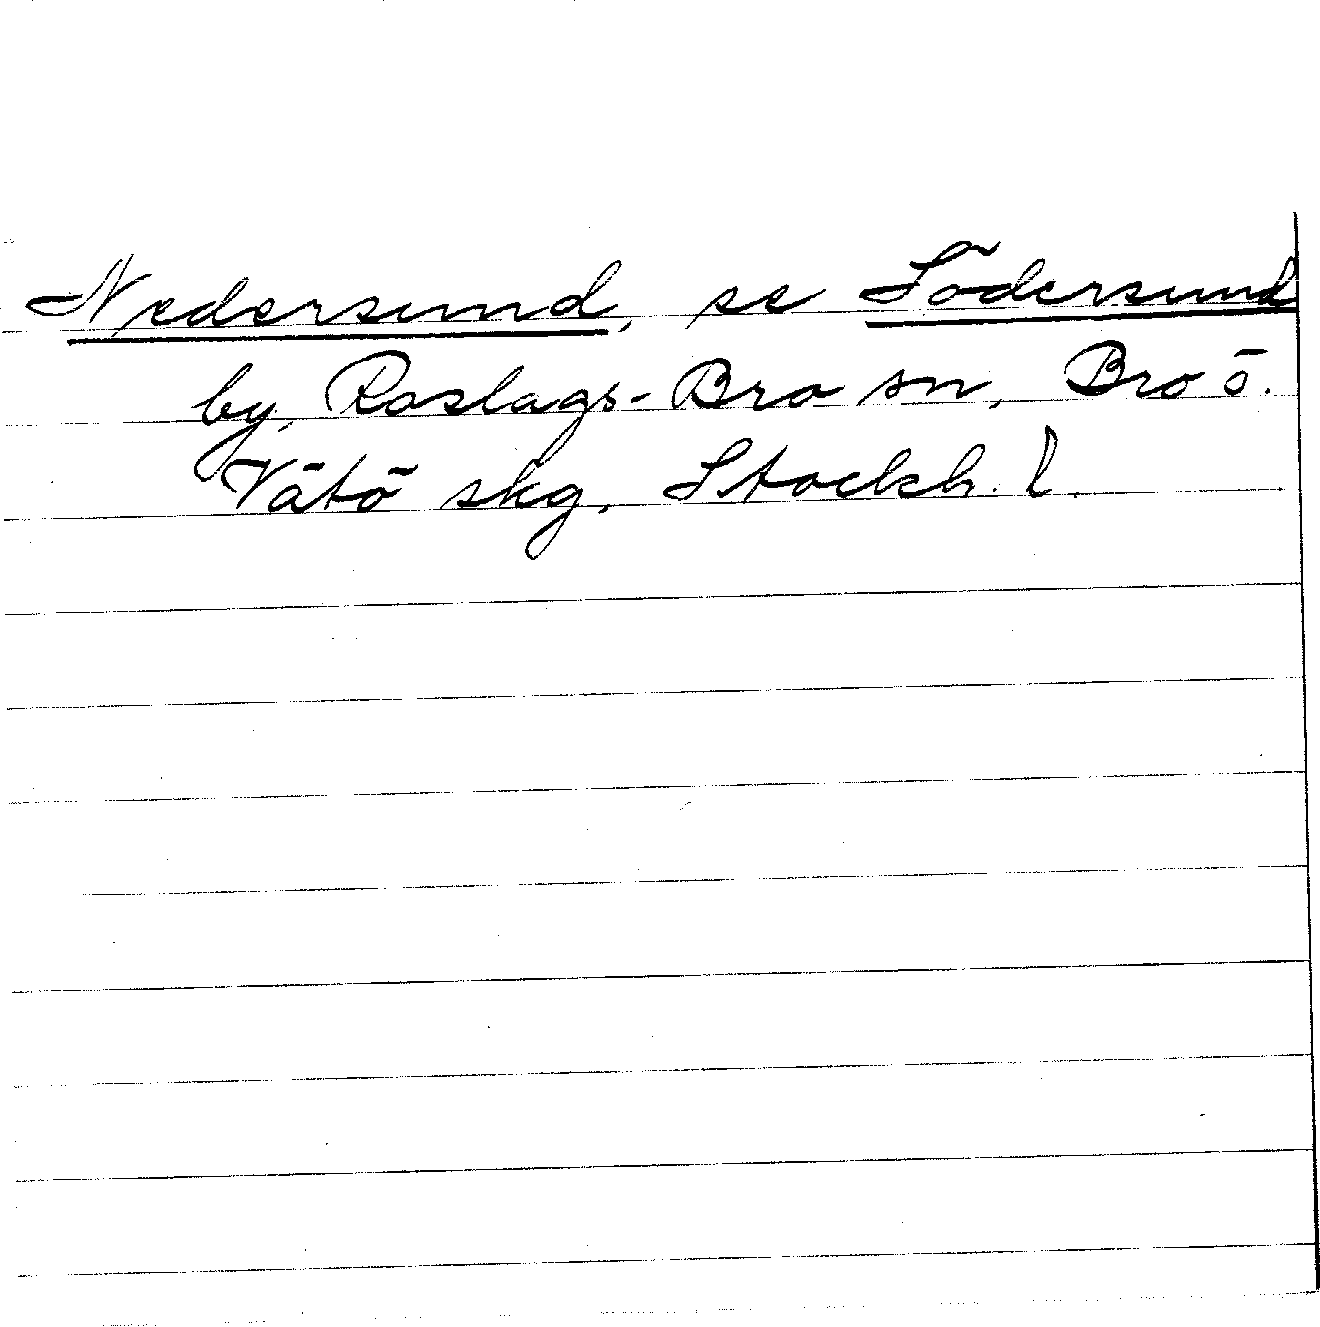 Nedersund, se Södersund
by, Roslags-Bro sn, Bro o.
Vätö skg, Stockh. l.